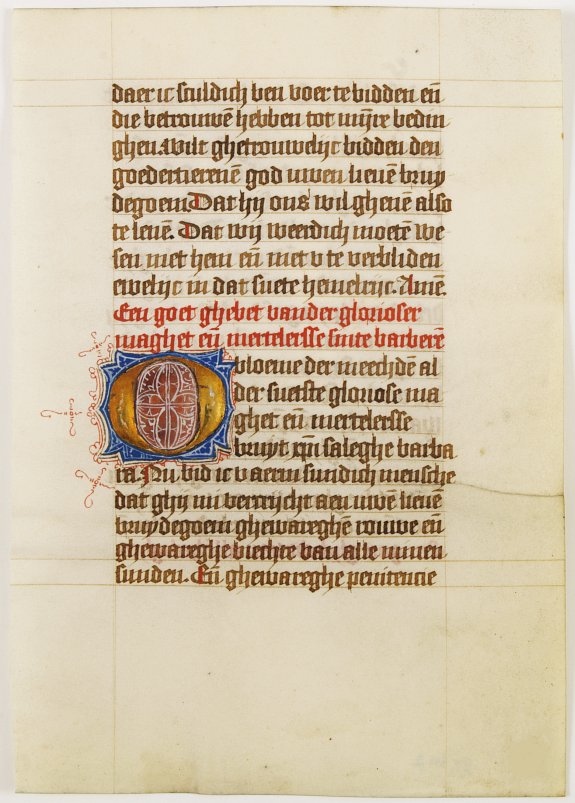 daer ic sculdich ben voer te bidden eñ
die betrouwē hebben tot mijnre bedin
ghen. Wilt ghetrouwelijc bidden den
goedertierenē god uwen lieuē bruy
degoem. Dat hij ons wil gheuē also
te leuē. Dat wij weerdich moetē we
sen met hem eñ met v te verbliden
ewelijc in dat suete hemelrijc. Amē.
Een goet ghebet vander glorioser
maghet eñ mertelersse sinte barberē
O bloeme der meechdē al
der suetste gloriose ma
ghet eñ mertelersse
bruyt xp̄i saleghe barba
ra. Nu bid ic v aerm sundich mensche
dat ghij mi verwijcht aen uwē lieuē
bruydegoem ghewareghē rouwe eñ
ghewareghe biechte van alle minen
sunden. Eñ ghewareghe penitencie